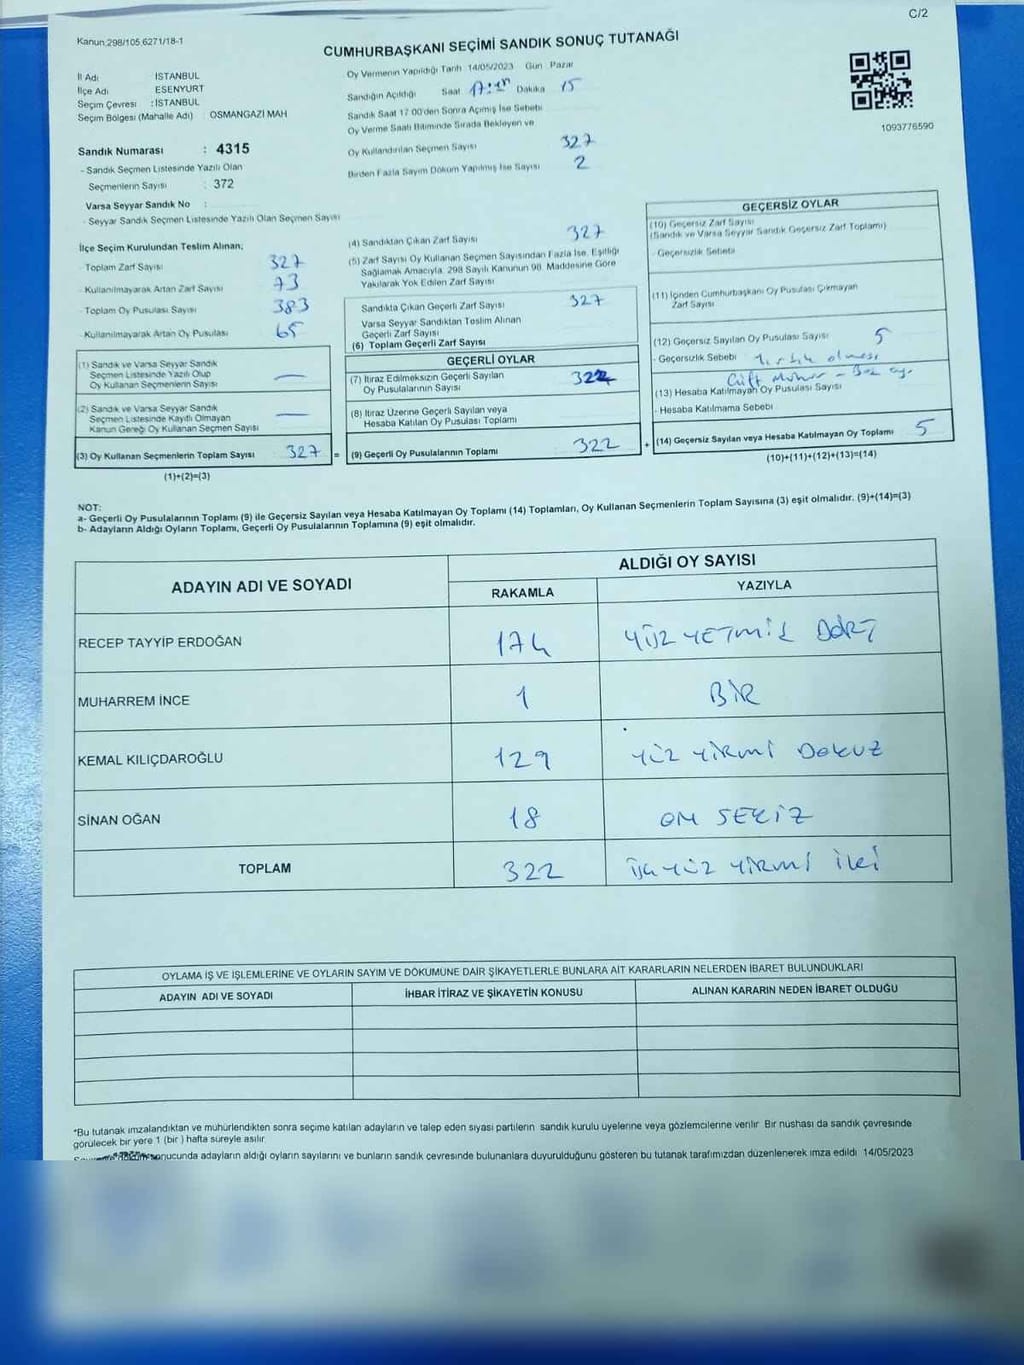 C/2
Kanun 298/105 6271/18-1
CUMHURBAŞKANI SEÇİMİ SANDIK SONUÇ TUTANAĞI
İl Adı İSTANBUL
İlçe Adı ESENYURT
Seçim Çevresi : İSTANBUL
Seçim Bölgesi (Mahalle Adı) : OSMANGAZİ MAH
Sandık Numarası : 4315
- Sandık Seçmen Listesinde Yazılı Olan
Seçmenlerin Sayısı : 372
Varsa Seyyar Sandık No :
- Seyyar Sandık Seçmen Listesinde Yazılı Olan Seçmen Sayısı
Oy Vermenin Yapıldığı Tarih 14/05/2023 Gün Pazar
Sandığın Açıldığı Saat Dakika 15
Sandık Saat 17.00'den Sonra Açılmış İse Sebebi
Oy Verme Saati Bitiminde Sırada Bekleyen ve
Oy Kullandırılan Seçmen Sayısı 327
Birden Fazla Sayım Döküm Yapılmış İse Sayısı 2
1093776590
İlçe Seçim Kurulundan Teslim Alınan;
- Toplam Zarf Sayısı 327
- Kullanılmayarak Artan Zarf Sayısı 73
- Toplam Oy Pusulası Sayısı 383
- Kullanılmayarak Artan Oy Pusulası 65
(1) Sandık ve Varsa Seyyar Sandık
Seçmen Listesinde Yazılı Olup
Oy Kullanan Seçmenlerin Sayısı —
(2) Sandık ve Varsa Seyyar Sandık
Seçmen Listesinde Kayıtlı Olmayan
Kanun Gereği Oy Kullanan Seçmen Sayısı —
(3) Oy Kullanan Seçmenlerin Toplam Sayısı 327 =
(1)+(2)=(3)
(4) Sandıktan Çıkan Zarf Sayısı 327
(5) Zarf Sayısı Oy Kullanan Seçmen Sayısından Fazla İse, Eşitliği
Sağlamak Amacıyla, 298 Sayılı Kanunun 98. Maddesine Göre
Yakılarak Yok Edilen Zarf Sayısı
Sandıkta Çıkan Geçerli Zarf Sayısı 327
Varsa Seyyar Sandıktan Teslim Alınan
Geçerli Zarf Sayısı
(6) Toplam Geçerli Zarf Sayısı
GEÇERLİ OYLAR
(7) İtiraz Edilmeksizin Geçerli Sayılan
Oy Pusulalarının Sayısı 322
(8) İtiraz Üzerine Geçerli Sayılan veya
Hesaba Katılan Oy Pusulası Toplamı
(9) Geçerli Oy Pusulalarının Toplamı 322 +
GEÇERSİZ OYLAR
(10) Geçersiz Zarf Sayısı
(Sandık ve Varsa Seyyar Sandık Geçersiz Zarf Toplamı)
- Geçersizlik Sebebi
(11) İçinden Cumhurbaşkanı Oy Pusulası Çıkmayan
Zarf Sayısı
(12) Geçersiz Sayılan Oy Pusulası Sayısı 5
- Geçersizlik Sebebi Yırtık olması
Çift Mühür -
(13) Hesaba Katılmayan Oy Pusulası Sayısı
- Hesaba Katılmama Sebebi
(14) Geçersiz Sayılan veya Hesaba Katılmayan Oy Toplamı 5
(10)+(11)+(12)+(13)=(14)
NOT:
a- Geçerli Oy Pusulalarının Toplamı (9) ile Geçersiz Sayılan veya Hesaba Katılmayan Oy Toplamı (14) Toplamları, Oy Kullanan Seçmenlerin Toplam Sayısına (3) eşit olmalıdır. (9)+(14)=(3)
b- Adayların Aldığı Oyların Toplamı, Geçerli Oy Pusulalarının Toplamına (9) eşit olmalıdır.
ADAYIN ADI VE SOYADI
ALDIĞI OY SAYISI
RAKAMLA YAZIYLA
RECEP TAYYİP ERDOĞAN 174 YÜZ YETMİŞ DÖRT
MUHARREM İNCE 1 BİR
KEMAL KILIÇDAROĞLU 129 YÜZ YİRMİ DOKUZ
SİNAN OĞAN 18 ON SEKİZ
TOPLAM 322 ÜÇ YÜZ YİRMİ İKİ
OYLAMA İŞ VE İŞLEMLERİNE VE OYLARIN SAYIM VE DÖKÜMÜNE DAİR ŞİKAYETLERLE BUNLARA AİT KARARLARIN NELERDEN İBARET BULUNDUKLARI
ADAYIN ADI VE SOYADI İHBAR İTİRAZ VE ŞİKAYETİN KONUSU ALINAN KARARIN NEDEN İBARET OLDUĞU
*Bu tutanak imzalandıktan ve mühürlendikten sonra seçime katılan adayların ve talep eden siyasi partilerin sandık kurulu üyelerine veya gözlemcilerine verilir. Bir nushası da sandık çevresinde
görülecek bir yere 1 (bir) hafta süreyle asılır.
sonucunda adayların aldığı oyların sayılarını ve bunların sandık çevresinde bulunanlara duyurulduğunu gösteren bu tutanak tarafımızdan düzenlenerek imza edildi 14/05/2023